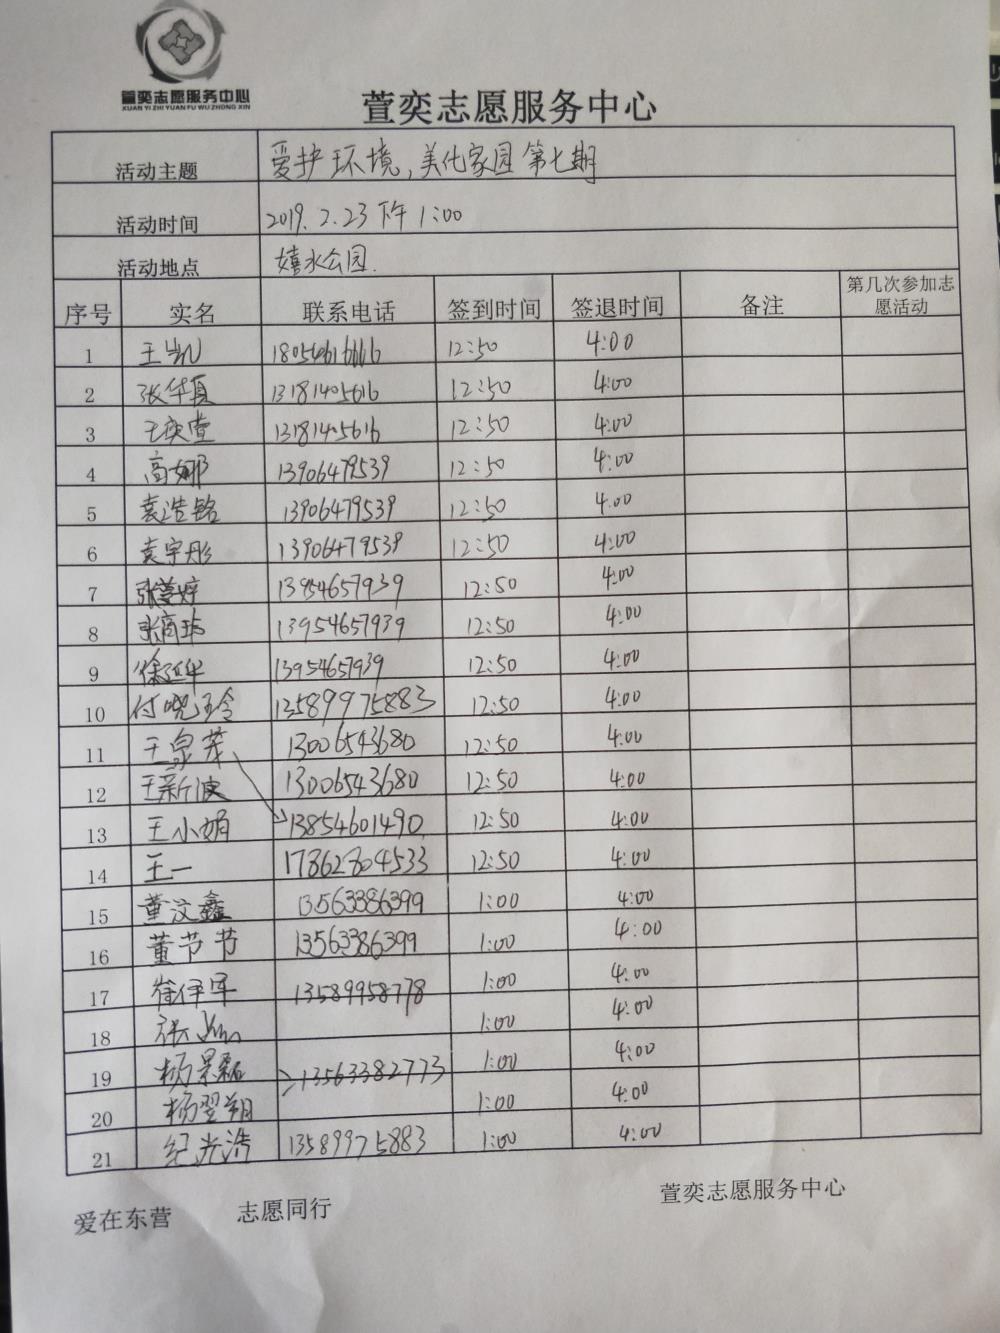 萱奕志愿服务中心
XUAN YI ZHI YUAN FU WU ZHONG XIN
萱奕志愿服务中心
活动主题 爱护环境,美化家园第七期
活动时间 2019.2.23下午1:00
活动地点 嬉水公园.
序号 实名 联系电话 签到时间 签退时间 备注 第几次参加志愿活动
1 王凯 12:50 4:00
2 张华夏 13181405616 12:50 4:00
3 王奕萱 13181405616 12:50 4:00
4 高娜 13906479539 12:50 4:00
5 袁浩铭 13906479539 12:50 4:00
6 袁宇彤 13906479539 12:50 4:00
7 张 婷 13954657939 12:50 4:00
8 张 13954657939 12:50 4:00
9 徐延华 13954657939 12:50 4:00
10 付晓玲 13589975883 12:50 4:00
11 王泉苹 13006543680 12:50 4:00
12 王新波 13006543680 12:50 4:00
13 王小娟 13854601490 12:50 4:00
14 王一 17862804533 12:50 4:00
15 董汶鑫 13563386399 1:00 4:00
16 董节节 13563386399 1:00 4:00
17 军 13589958778 1:00 4:00
18 张 1:00 4:00
19 杨景 13563382773 1:00 4:00
20 杨翌朔 1:00 4:00
21 纪光浩 13589975883 1:00 4:00
爱在东营 志愿同行 萱奕志愿服务中心